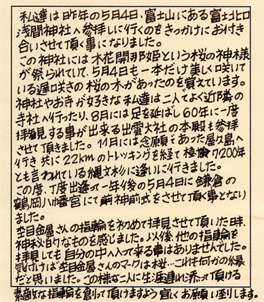 私達は昨年の5月4日、富士山にある富士北口
浅間神社へ参拝しに行くのをきっかけにお付き
合いさせて頂く事になりました。
この神社には木花開耶姫という桜の神様
が祭られていて、5月4日も一本だけ美しく咲いて
いる遅咲きの桜の木があったのを覚えています。
神社やお寺が好きな私達は二人でよく近隣の
寺社へ行ったり、8月には足を延ばし60年に一度
拝観する事が出来る出雲大社の本殿を参拝
させて頂きました。11月には念願であった屋久島へ
行き共に22kmのトレッキングを経て 7200年
とも言われている縄文杉に逢いに行きました。
この度、丁度出逢って一年後の5月4日に鎌倉の
鶴岡八幡宮にて 神前式をさせて頂く事となり
ました。
杢目金屋さんの指輪を初めて拝見させて頂いた時、
神秘的なものを感じました。以後、他の指輪を
拝見しても自分の中へ入って来る事はありませんでした。
気付けば杢目金屋さんのマークは桜…これも何かの縁
だと思いました。この様な二人に生涯連れ添って頂ける
素敵な指輪を創って頂けますよう宜しくお願い致します。